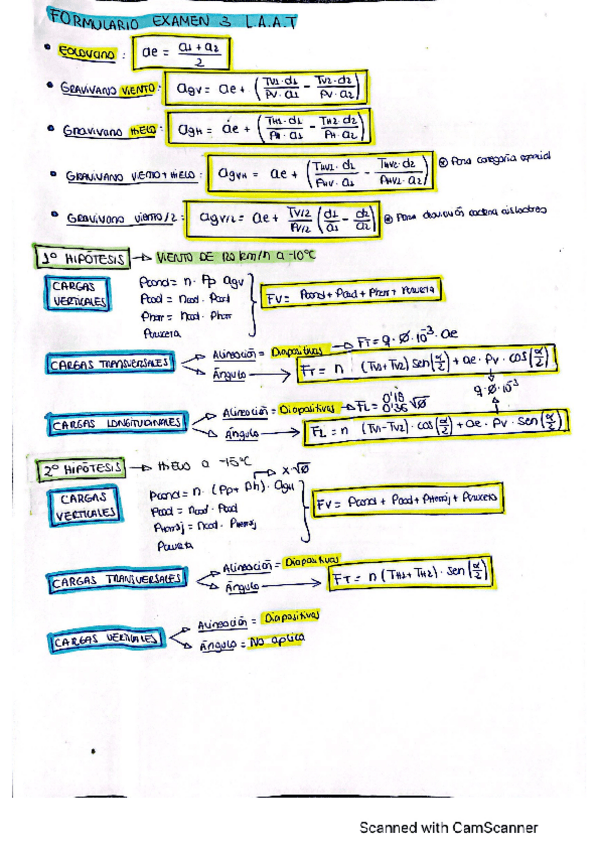 FORMULARIO EXAMEN 3 L.A.A.T
• EOLOVANO: ae = (a1 + a2) / 2
• GRAVIVANO VIENTO: agv = ae + (Tv1·d1 / Pv·a1 − Tv2·d2 / Pv·a2)
• GRAVIVANO HIELO: agH = ae + (TH1·d1 / PH·a1 − TH2·d2 / PH·a2)
• GRAVIVANO VIENTO + HIELO: agVH = ae + (THV1·d1 / PHV·a1 − THV2·d2 / PHV2·a2) ⊛ Para categoría especial
• GRAVIVANO VIENTO/2: agV/2 = ae + TV/2 / PV/2 (d1/a1 − d2/a2) ⊛ Para desviación cadena aisladores
1º HIPÓTESIS → VIENTO DE 120 km/h a -10ºC
CARGAS VERTICALES
Pcond = n · Pp agv
Pcad = ncad · Pcad
Pherr = ncad · Pherr
FV = Pcond + Pcad + Pherr +
CARGAS TRANSVERSALES
Alineación = Diapositivas → FT = q · Ø · 10⁻³ · ae
Ángulo → FT = n · (Tv1 + Tv2) sen(α/2) + ae · Pv · cos(α/2)
q · Ø · 10⁻³
CARGAS LONGITUDINALES
Alineación = Diapositivas → FL = 0'18 0'36 √Ø
Ángulo → FL = n (Tv1 - Tv2) · cos(α/2) + ae · Pv · sen(α/2)
2º HIPÓTESIS → HIELO a -15ºC
CARGAS VERTICALES
x √Ø
Pcond = n · (Pp + Ph) · agH
Pcad = ncad · Pcad
Pherraj = ncad · Pherraj
FV = Pcond + Pcad + Pherraj +
CARGAS TRANSVERSALES
Alineación = Diapositivas
Ángulo → FT = n (TH1 + TH2) · sen(α/2)
CARGAS VERTICALES
Alineación = Diapositivas
Ángulo = No aplica
Scanned with CamScanner